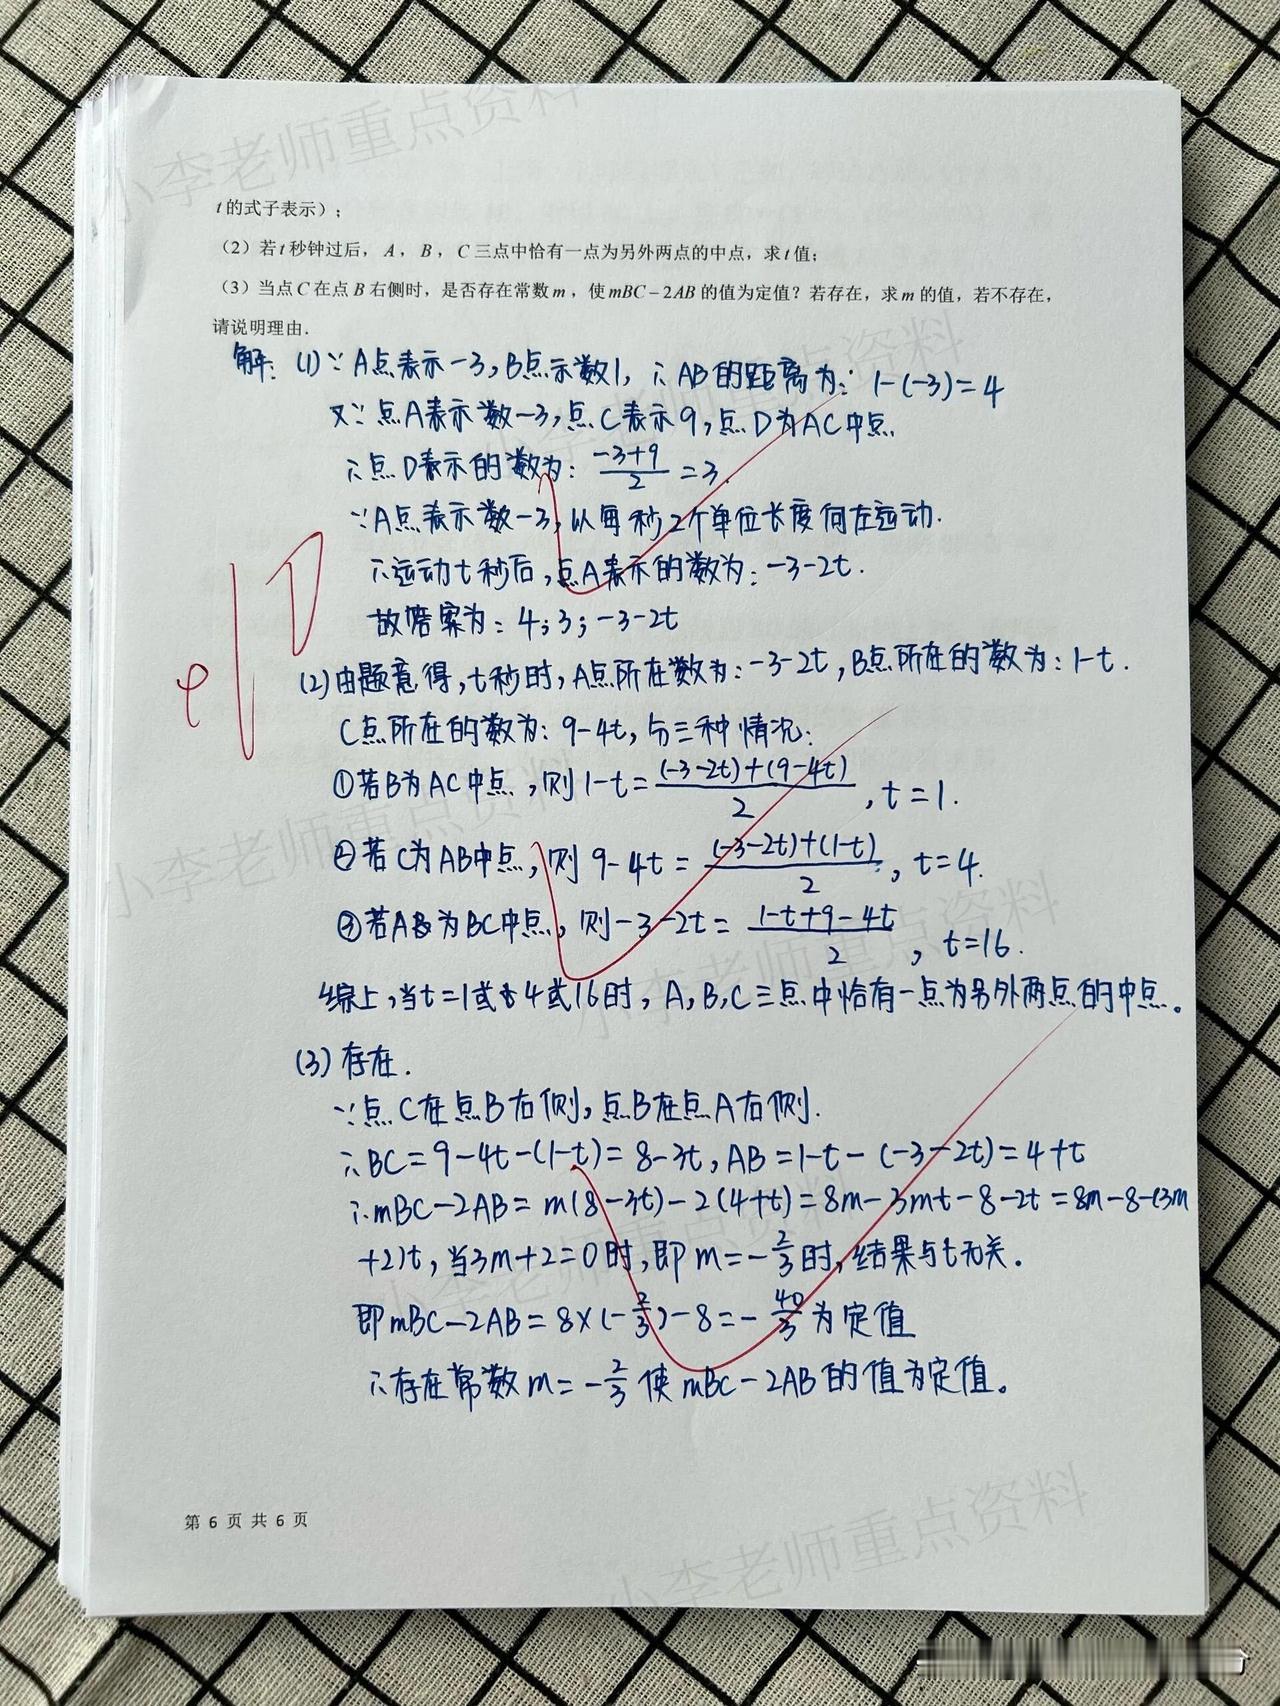 小李老师重点资料
t的式子表示）；
（2）若t秒钟过后，A，B，C三点中恰有一点为另外两点的中点，求t值；
（3）当点C在点B右侧时，是否存在常数m，使mBC－2AB的值为定值？若存在，求m的值，若不存在，
请说明理由.
小李老师重点资料
解：(1)∵A点表示-3,B点示数1,∴AB的距离为：1-(-3)=4
又∵点A表示数-3,点C表示9,点D为AC中点.
∴点D表示的数为：(-3+9)/2=3.
∵A点表示数-3,以每秒2个单位长度向左运动.
∴运动t秒后,点A表示的数为：-3-2t.
故答案为：4;3;-3-2t
+10
(2)由题意得,t秒时,A点所在数为：-3-2t,B点所在的数为：1-t.
C点所在的数为：9-4t,分三种情况：
①若B为AC中点,则1-t=((-3-2t)+(9-4t))/2,t=1.
小李老师重点资料
②若C为AB中点,则9-4t=((-3-2t)+(1-t))/2,t=4.
③若A为BC中点,则-3-2t=(1-t+9-4t)/2,t=16.
小李老师重点资料
综上,当t=1或4或16时,A,B,C三点中恰有一点为另外两点的中点。
(3)存在.
∵点C在点B右侧,点B在点A右侧.
∴BC=9-4t-(1-t)=8-3t,AB=1-t-(-3-2t)=4+t
∴mBC-2AB=m(8-3t)-2(4+t)=8m-3mt-8-2t=8m-8-(3m
小李老师重点资料
+2)t,当3m+2=0时,即m=-2/3时,结果与t无关.
即mBC-2AB=8×(-2/3)-8=-40/3为定值
∴存在常数m=-2/3使mBC-2AB的值为定值。
第 6 页 共 6 页
小李老师重点资料